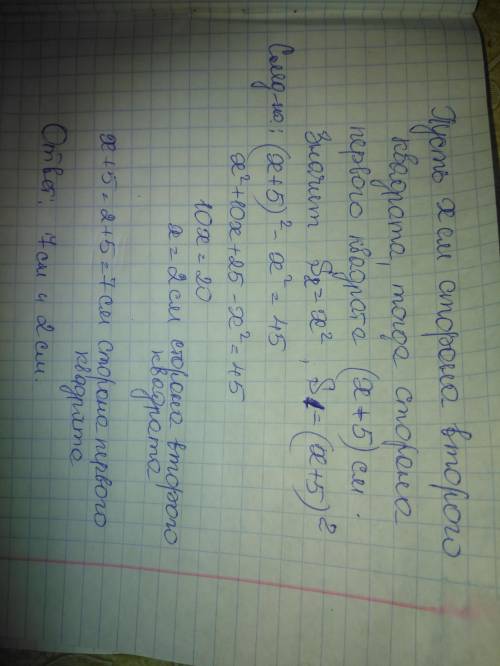 Пусть x см сторона второго
квадрата, тогда сторона
первого квадрата (x+5) см.
Значит S₂ = x², S₁ = (x+5)²
След-но: (x+5)² - x² = 45
x² + 10x + 25 - x² = 45
10x = 20
x = 2 см сторона второго
квадрата
x+5 = 2+5 = 7 см сторона первого
квадрата
Ответ: 7 см и 2 см.